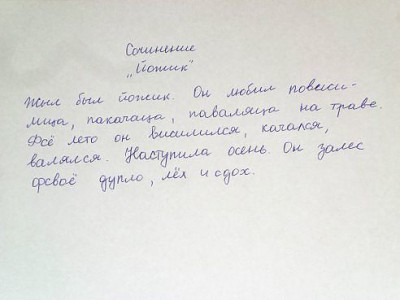 Сочинение
„Йожик"
Жыл был йожик. Он любил повесили-
мица, пакачаца, паваляца на траве.
Фсё лето он висилился, качался,
валялся. Наступила осень. Он залес
фсваё дупло, лёх и сдох.